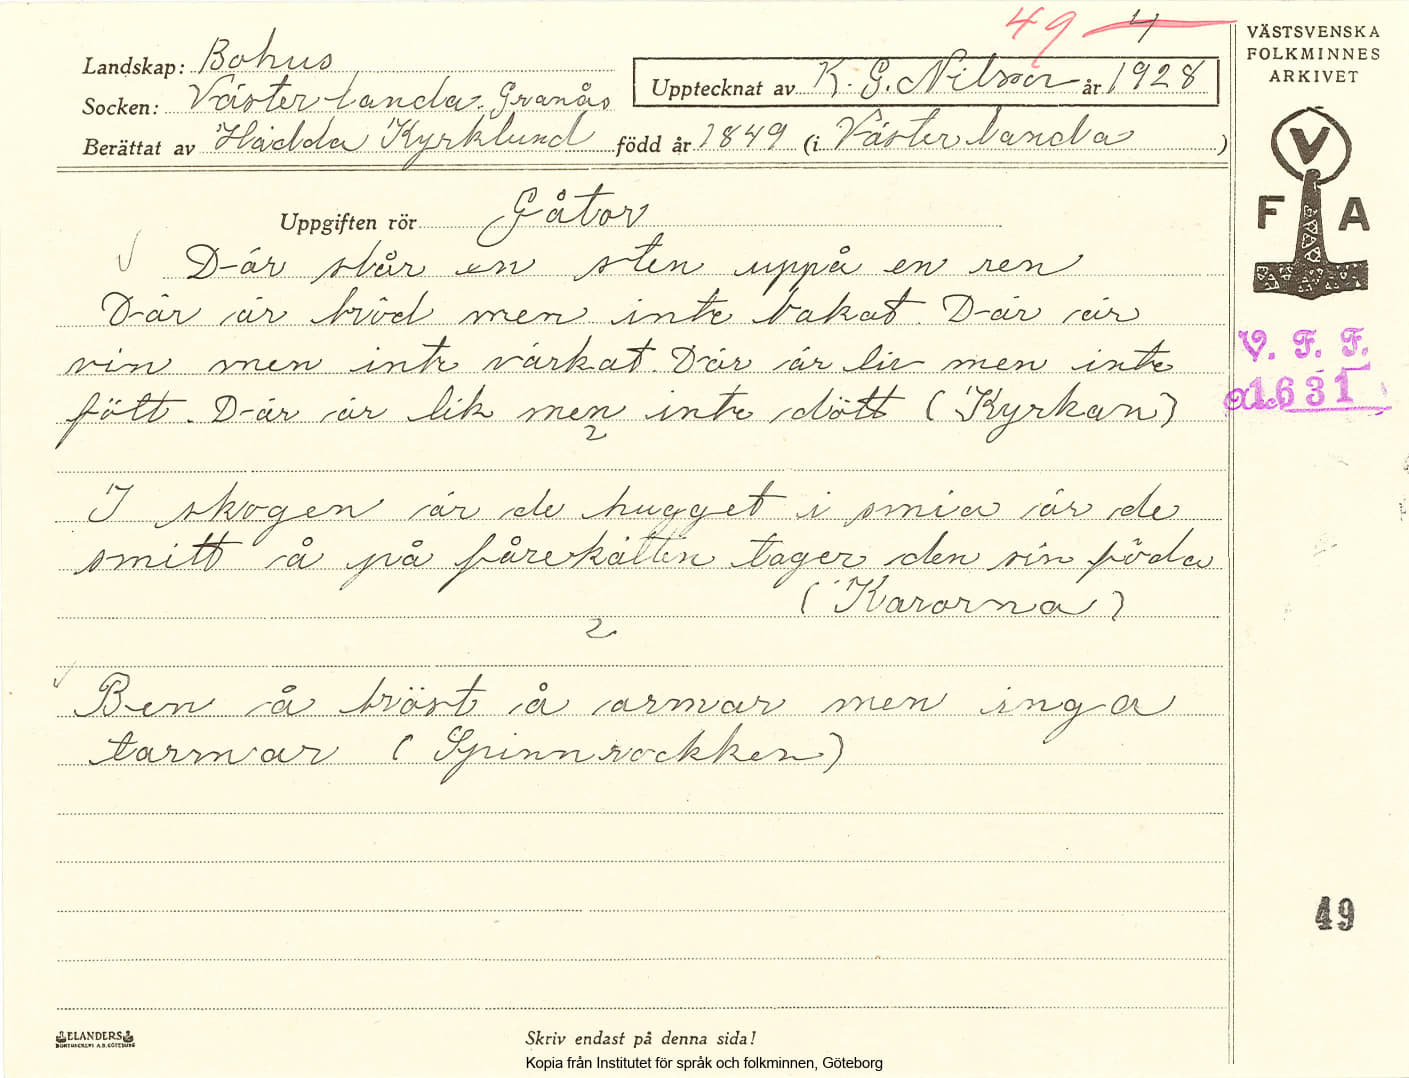 49 4
VÄSTSVENSKA
FOLKMINNES
ARKIVET
Landskap: Bohus
Upptecknat av K. G. Nilson år 1928
Socken: Västerlanda. Granås
Berättat av Hädda Kyrklund född år 1849 (i Västerlanda )
V
F A
Uppgiften rör Gåtor
Där står en sten uppå en ren
Där är bröd men inte bakat. Där är
vin men inte värkat. Där är liv men inte
fött. Där är lik men inte dött (Kyrkan)
2
V. F. F.
1631
I skogen är de hugget i smia är de
smitt å på fårekälten tager den sin föda
(Karorna)
2
Ben å bröst å armar men inga
tarmar (Spinnrockken)
49
ELANDERS
BOKTRYCKERI A.B. GÖTEBORG
Skriv endast på denna sida!
Kopia från Institutet för språk och folkminnen, Göteborg